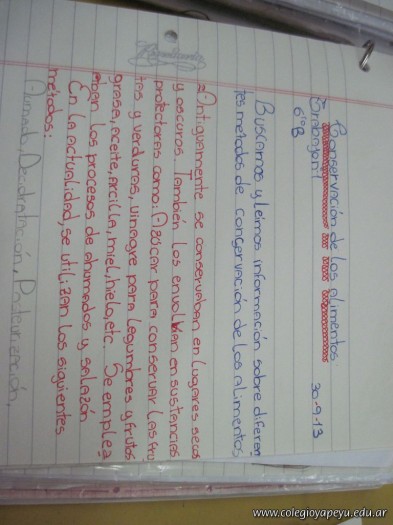 Conservación de los alimentos:
30-9-13
6to B
Buscamos y leimos información sobre diferen
tes métodos de conservación de los alimentos
Antiguamente se conservaban en lugares secos
y oscuros. También los envolvían en sustancias
protectoras como: Azúcar para conservar las fru
tas y verduras, vinagre para legumbres y frutos
grasa, aceite, arcilla, miel, hielo, etc. Se emplea
ban los procesos de ahumados y salazón
En la actualidad, se utilizan los siguientes
métodos:
Ahumado, Decidratación, Pasteurización,
www.colegioyapeyu.edu.ar